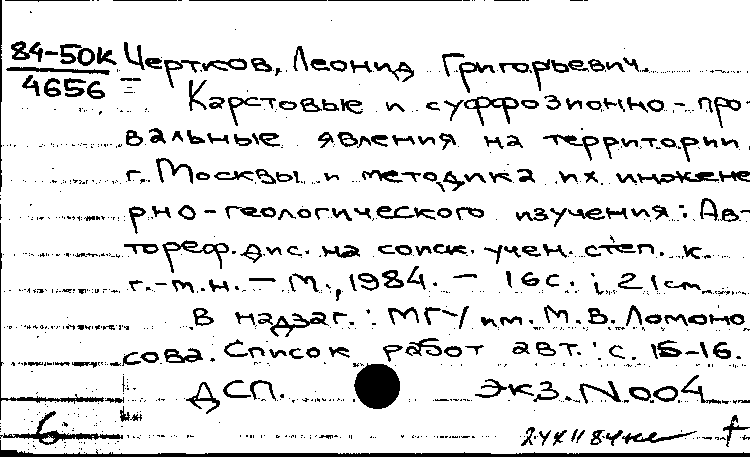 84-50К Чертков, Леонид Григорьевич.
4656
Карстовые и суффозионно-про-
вальные явления на территории
г. Москвы и методика их инжене
рно-геологического изучения: Ав-
тореф. дис. на соиск. учен. степ. к.
г.-м.н. — М., 1984. — 16с.; 21см
В надзаг.: МГУ им. М.В. Ломоно
сова. Список работ авт.: с. 15-16.
ДСП. Экз. N004
6